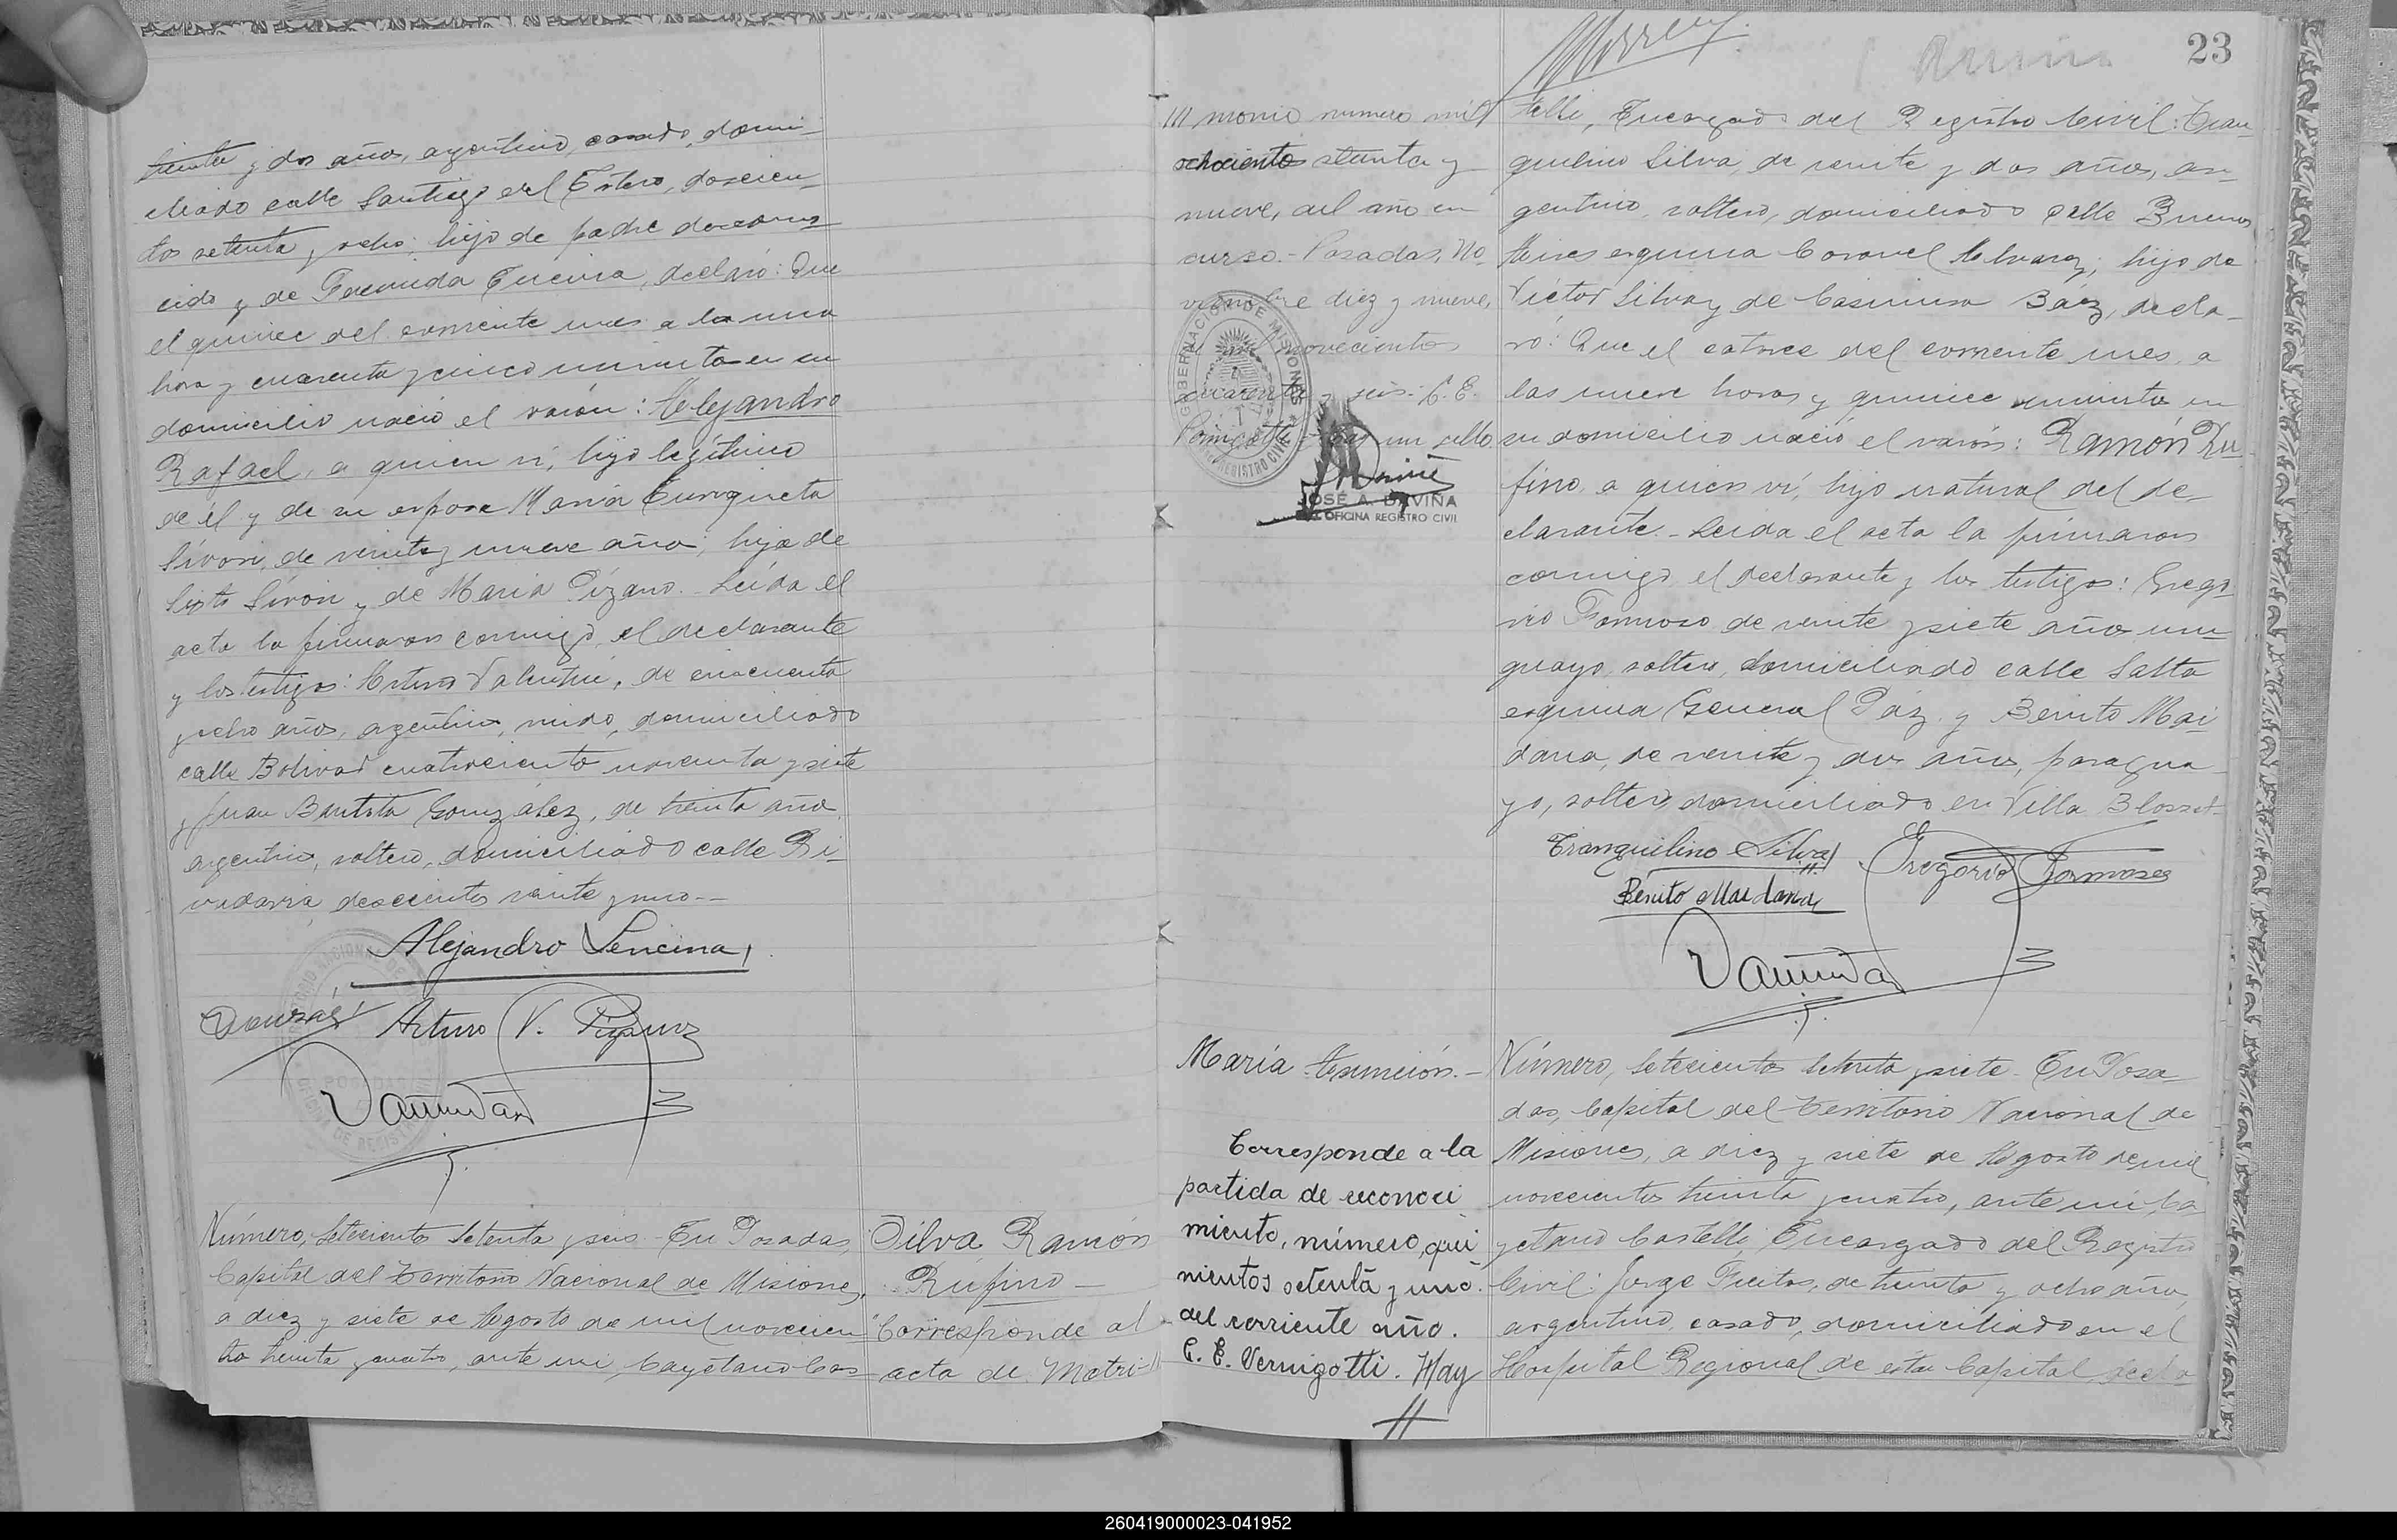 treinta y dos años, argentino, casado, domi-
ciliado calle Santiago del Estero, doscien-
tos setenta y ocho; hijo de padre descono-
cido y de Facunda Lencina, declaró: Que
el quince del corriente mes a la una
hora y cuarenta y cinco minutos en su
domicilio nació el varón: Alejandro
Rafael, a quien ví, hijo legítimo
de él y de su esposa María Enriqueta
Sívori, de veinte y nueve años; hija de
Sixto Sívori y de María Pízano.- Leída el
acta la firmaron conmigo, el declarante
y los testigos: Arturo Valentín, de cincuenta
y ocho años, argentino, viudo, domiciliado
calle Bolívar cuatrocientos noventa y siete
y Juan Bautista González, de treinta años
argentino, soltero, domiciliado calle Ri-
vadavia doscientos veinte y uno.--
Alejandro Lencina
Arturo V.
Número, Setecientos Setenta y seis.- En Posadas,
Capital del Territorio Nacional de Misiones,
a diez y siete de Agosto de mil novecien
tos treinta y cuatro, ante mi, Cayetano Cas-
Silva Ramón
Rufino-
"Corresponde al
acta de Matri-
23
monio número mil
ochocientos setenta y
nueve, del año en
curso.- Posadas, No-
viembre diez y nueve,
de mil novecientos
cuarenta y seis.- C. E.
Vernigotti - Hay un sello.
GOBERNACION DE MISIONES
REGISTRO CIVIL
JOSÉ A. DAVIÑA
OFICINA REGISTRO CIVIL
telli, Encargado del Registro Civil: Tran
quilino Silva, de veinte y dos años, ar-
gentino, soltero, domiciliado calle Buenos
Aires esquina Coronel Alvarez; hijo de
Víctor Silva y de Casimira Báez, decla-
ró: Que el catorce del corriente mes, a
las nueve horas y quince minutos en
su domicilio nació el varón: Ramón Ru-
fino, a quien ví, hijo natural del de-
clarante.- Leida el acta la firmaron
conmigo el declarante y los testigos: Grego
rio Formoso de veinte y siete años uru-
guayo, soltero, domiciliado calle Salta
esquina General Páz y Benito Mai
dana, de veinte y dos años, paragua-
yo, soltero, domiciliado en Villa Blosset.-
Tranquilino Silva
Gregorio Formoso
Benito Maidana
María Asunción.-
Corresponde a la
partida de reconoci
miento, número, qui
nientos setenta y uno.
del corriente año.
C. E. Vernigotti. Hay
Número, Setecientos Setenta y siete.- En Posa-
das, Capital del Territorio Nacional de
Misiones, a diez y siete de Agosto de mil
novecientos treinta y cuatro, ante mi, Ca
yetano Castelli, Encargado del Registro
Civil: Jorge Freitas, de treinta y ocho años,
argentino, casado, domiciliado en el
Hospital Regional de esta Capital, decla-
260419000023-041952